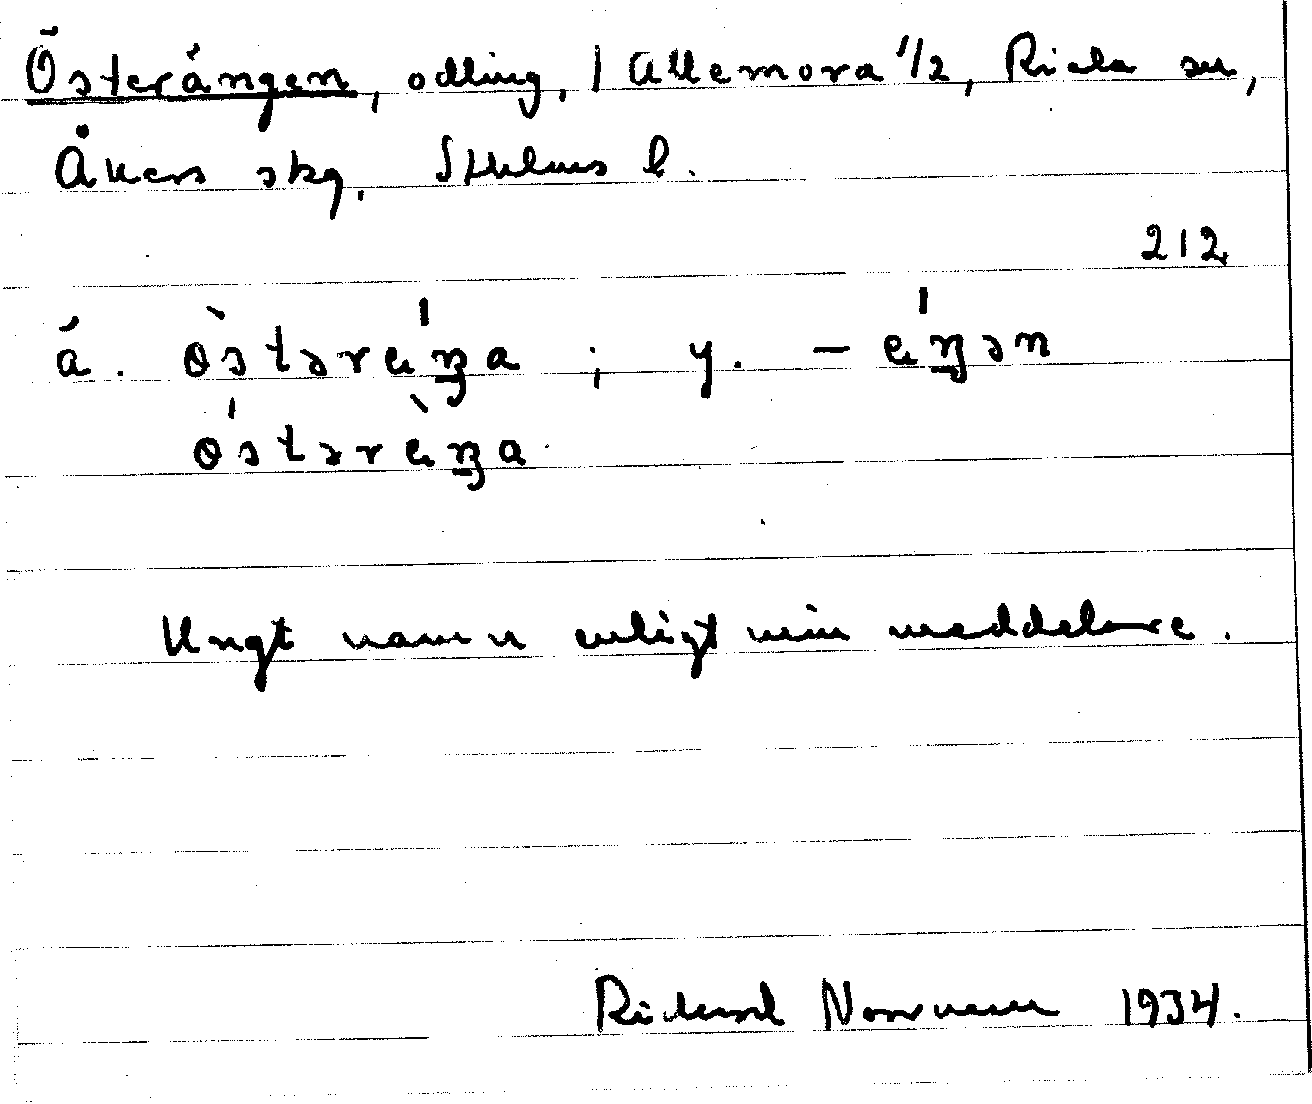 Österängen, odling, 1 Allemora 1/2, Riala sn,
Åkers skg. Sthlms l.
212
ä. òstəreŋ́a ; y. – eŋ́ən
óstəreŋ̀a
Ungt namn enligt min meddelare.
Rickard Norrman 1934.